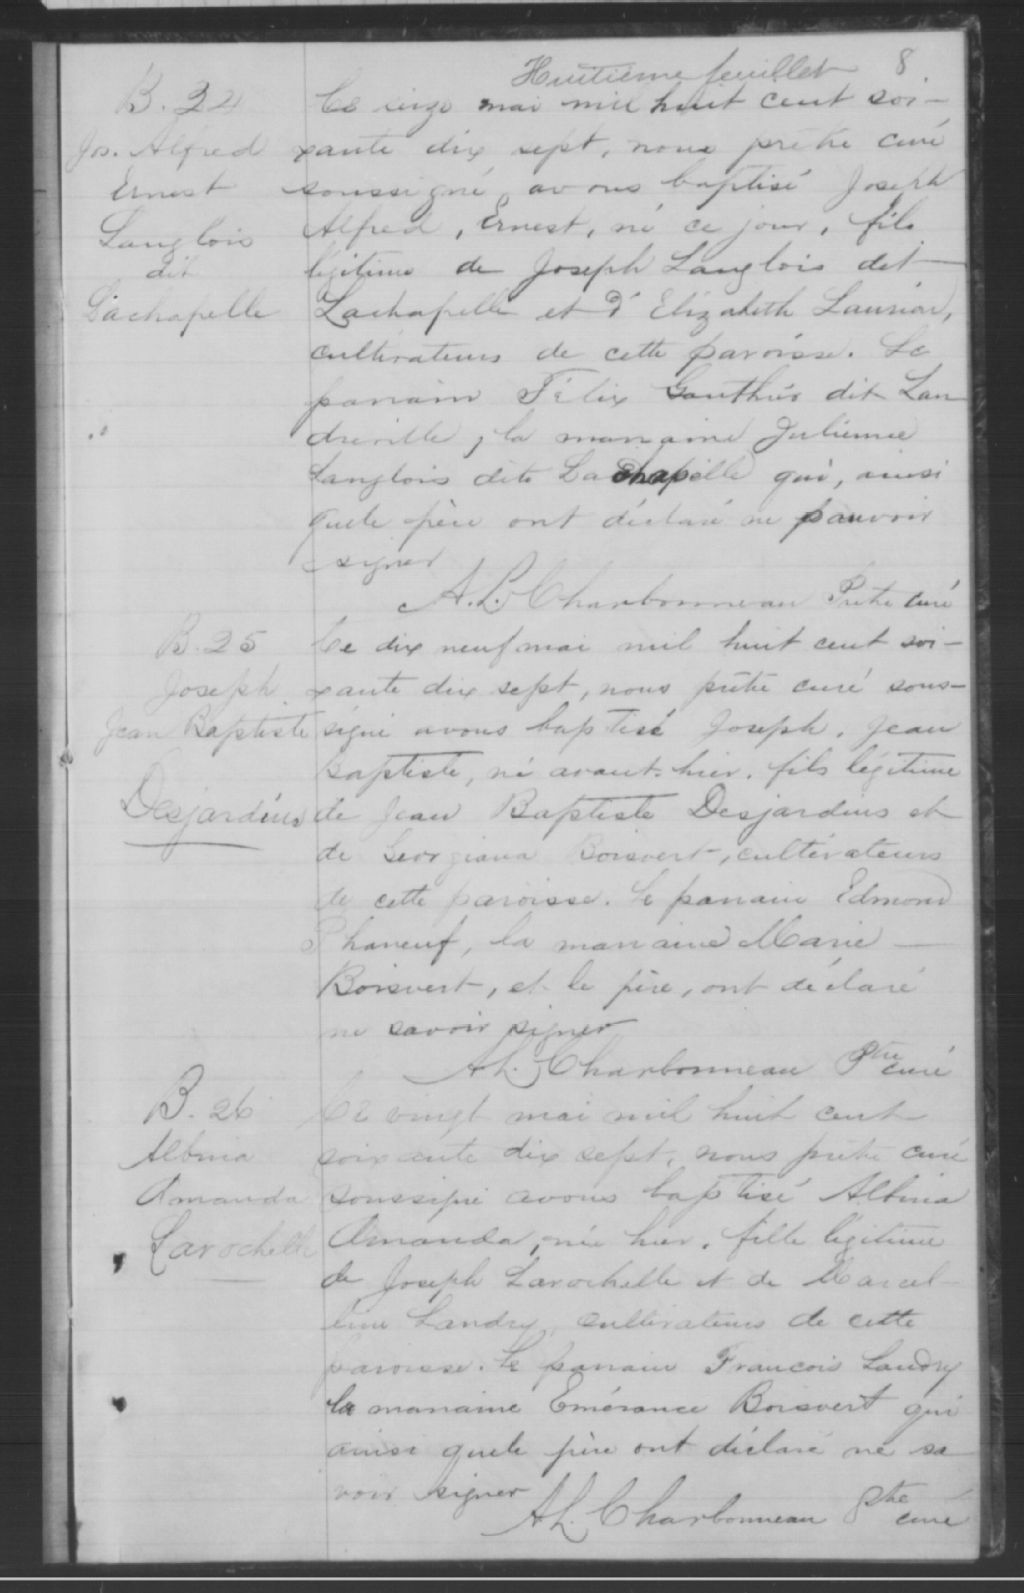 Huitième feuillet 8.
B. 24
Jos. Alfred
Ernest
Langlois
dit
Lachapelle
Ce seize mai mil huit cent soi-
xante dix sept, nous prêtre curé
soussigné avons baptisé Joseph
Alfred, Ernest, né ce jour, fils
légitime de Joseph Langlois dit
Lachapelle et d'Elizabeth
cultivateurs de cette paroisse. Le
parrain Félix Gauthier dit Lan
dreville, la marraine Julienne
Langlois dite Lachapelle qui, ainsi
que le père ont déclaré ne pouvoir
signer
A. L. Charbonneau Prêtre curé
B. 25
Joseph
Jean Baptiste
Desjardins
Ce dix neuf mai mil huit cent soi-
xante dix sept, nous prêtre curé sous-
signé avons baptisé Joseph, Jean
Baptiste, né avant-hier, fils légitime
de Jean Baptiste Desjardins et
de Georgiana Boisvert, cultivateurs
de cette paroisse. Le parrain Edmond
Phaneuf, la marraine Marie
Boisvert, et le père, ont déclaré
ne savoir signer
A L. Charbonneau Ptre curé
B. 26
Albina
Amanda
Larochelle
Ce vingt mai mil huit cent
soixante dix sept, nous prêtre curé
soussigné avons baptisé Albina
Amanda, née hier, fille légitime
de Joseph Larochelle et de Marcel-
line Landry, cultivateurs de cette
paroisse. Le parrain Francois Landry
la marraine Emérance Boisvert qui
ainsi que le père ont déclaré ne sa
voir signer
A L. Charbonneau Ptre curé